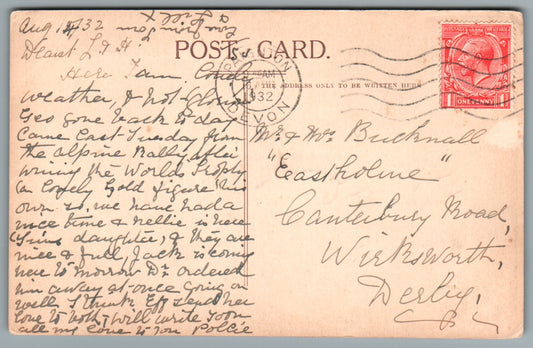 Aug 14/32
love from Jim
a Felix
Dearest L & H
POST CARD.
Here I am, Cool
weather, & not Glorious
Geo gone back to day
Came last Tuesday from
the Alpine Rally, after
wining the Worlds Trophy
(a lovely gold figure) his
own so, we have had a
nice time & Nellie is here
(Jims daughter, & they are
nice & full, Jack is coming
here to morrow Dr ordered
him away at once going on
well I think Eff sends her
love to both & will write soon
all my love to you Pollie
THE ADDRESS ONLY TO BE WRITTEN HERE
AM
1932
DEVON
ONE PENNY
Mr & Mrs Bucknall
"Eastholme"
Canterbury Road,
Wirksworth,
Derby,